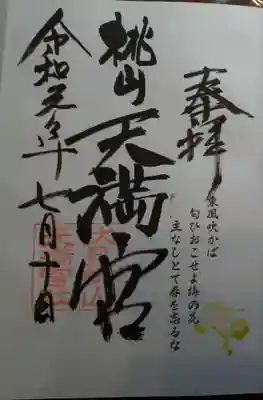 奉拝
東風吹かば
匂ひおこせよ梅の花
主なしとて春を忘るな
桃山天満宮
令和元年七月十日